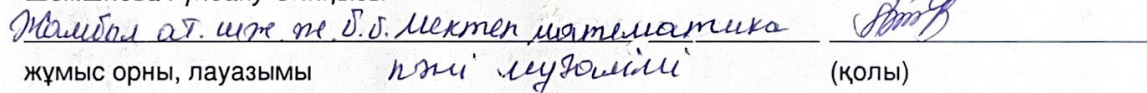 Жамбыл ат. шж ж.б.б. мектеп математика
жұмыс орны, лауазымы пәні мұғалімі (қолы)